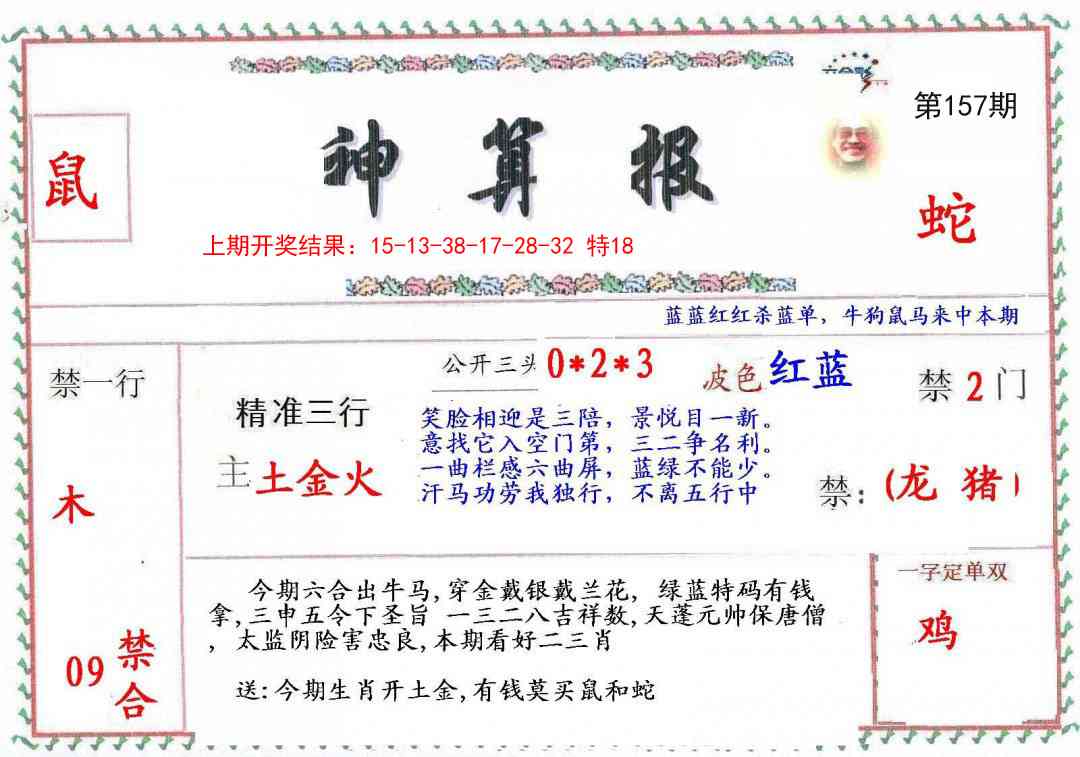 六合彩
第157期
鼠
神算报
蛇
上期开奖结果：15-13-38-17-28-32 特18
蓝蓝红红杀蓝单，牛狗鼠马来中本期
禁一行
公开三头 0*2*3
波色 红蓝
禁 2 门
精准三行
笑脸相迎是三陪，景悦目一新。
意找它入空门第，三二争名利。
一曲栏感六曲屏，蓝绿不能少。
汗马功劳我独行，不离五行中
主 土金火
禁：(龙 猪)
木
一字定单双
今期六合出牛马,穿金戴银戴兰花，绿蓝特码有钱
拿,三申五令下圣旨 一三二八吉祥数,天蓬元帅保唐僧
，太监阴险害忠良,本期看好二三肖
鸡
09 禁合
送:今期生肖开土金,有钱莫买鼠和蛇